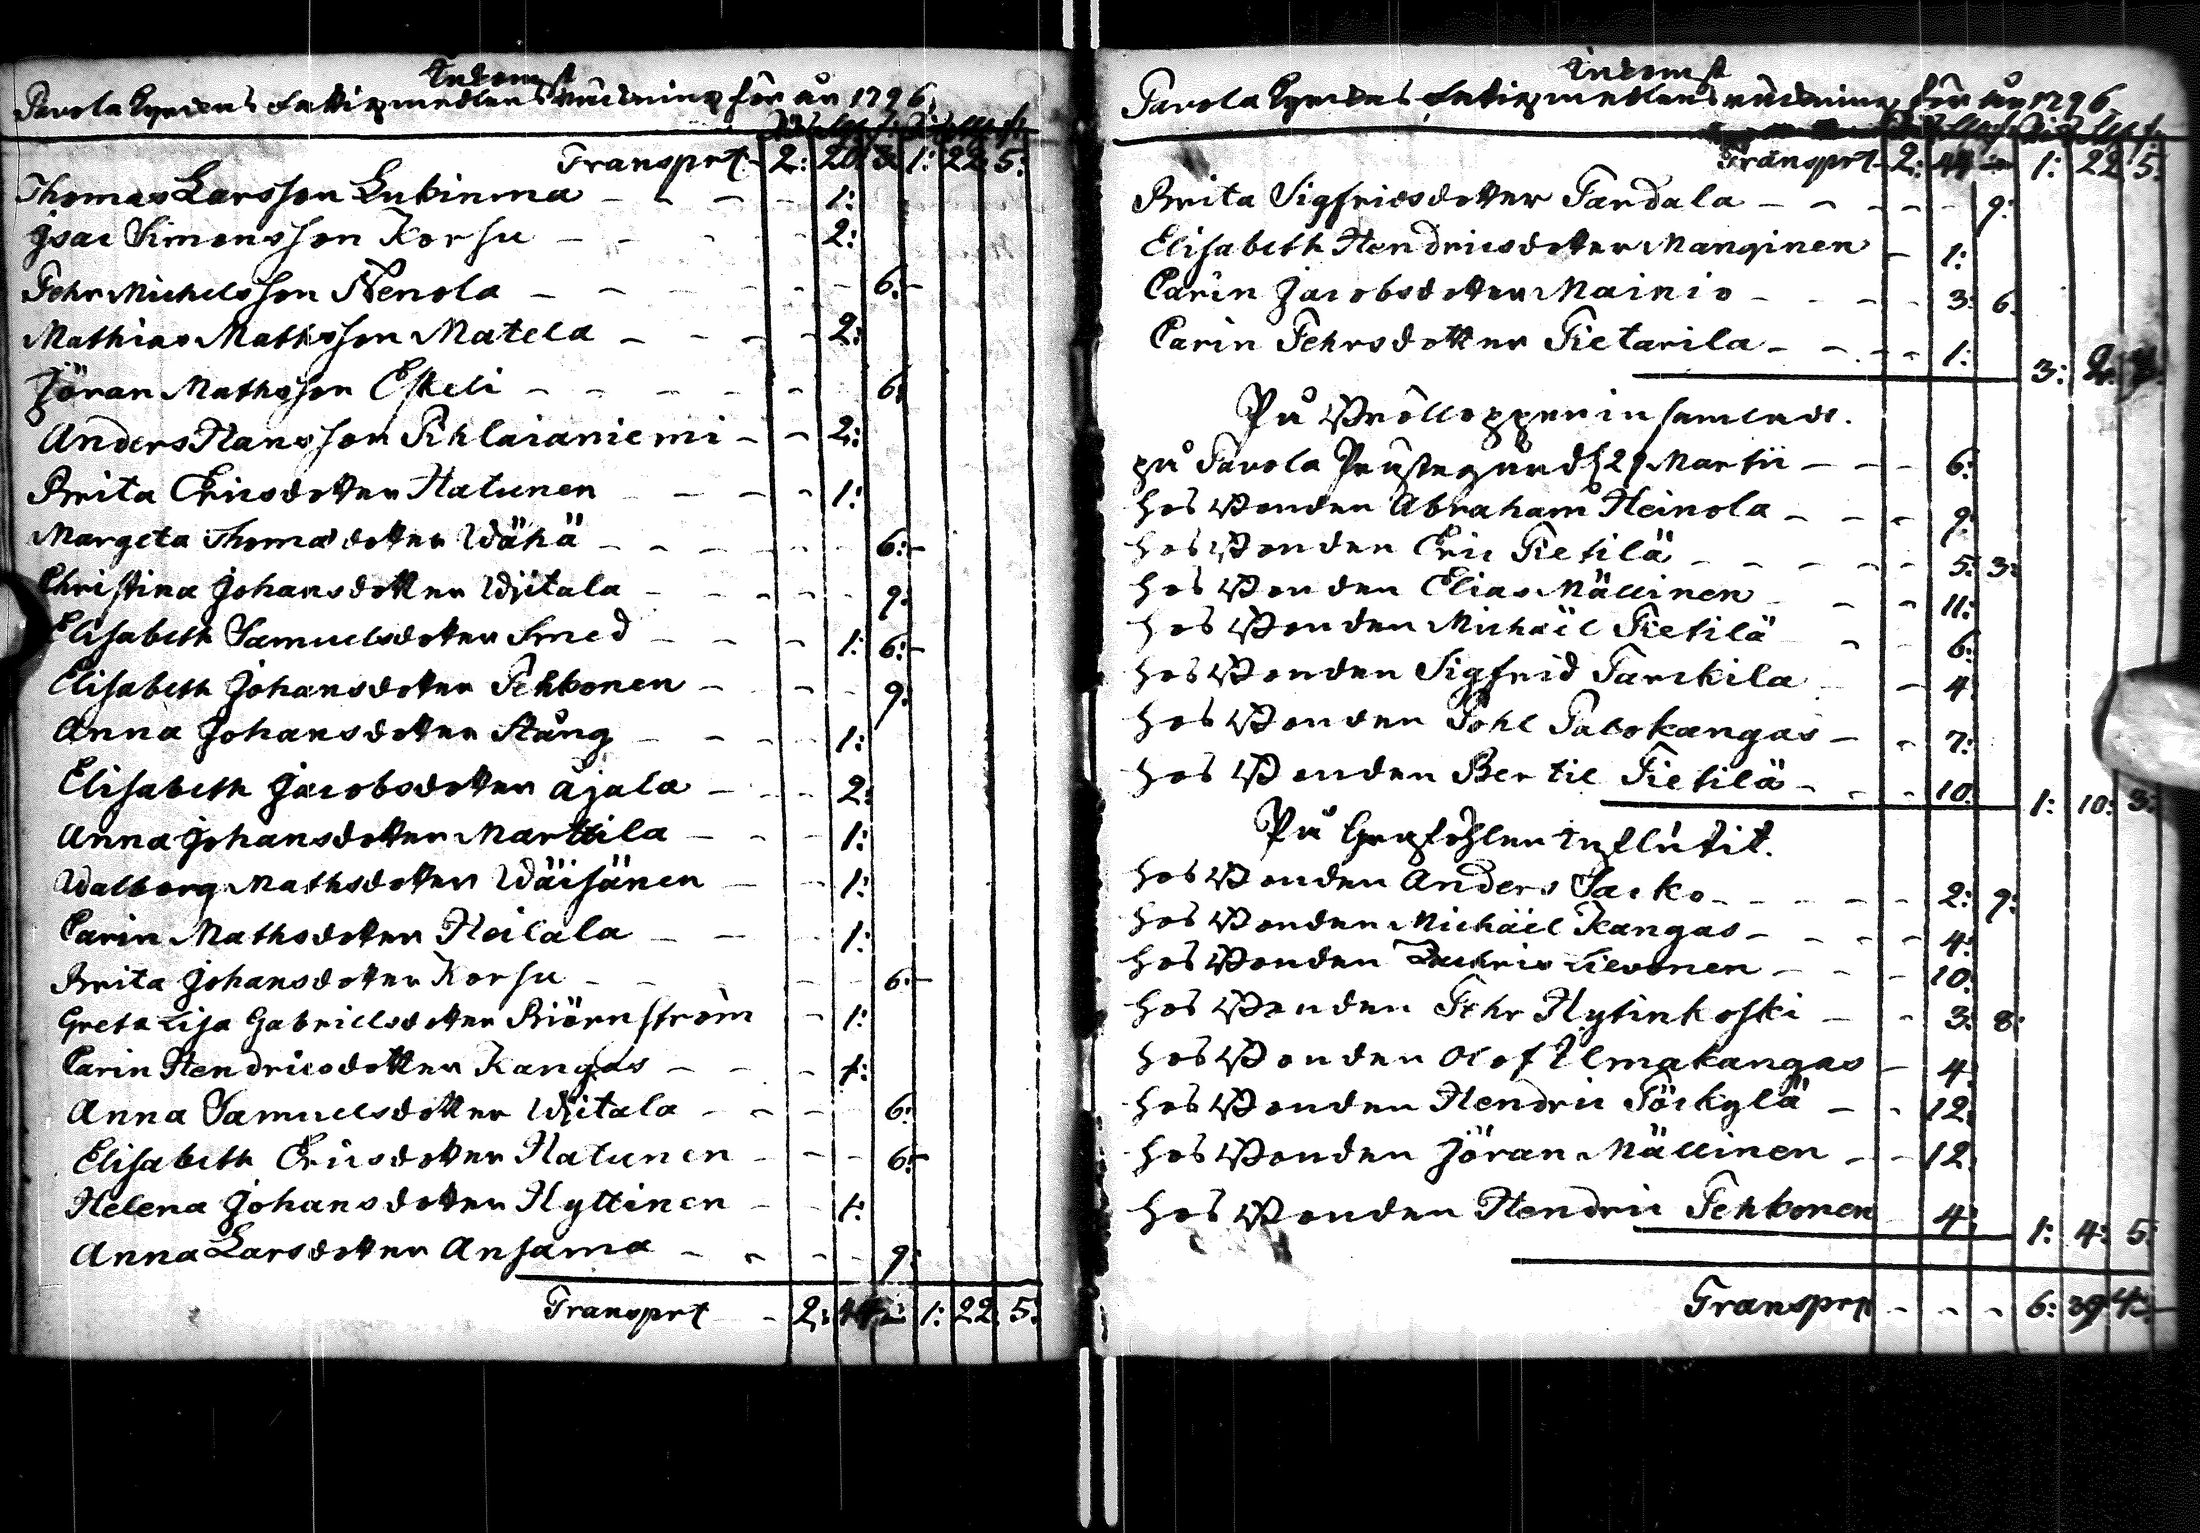 Inkomst
Pavola Kyrckas Fattigmedlens räckning för år 1796.
Transprt 2: 20. 3. 1: 22. 5:
Thomas Larsson Lukinma - - - 1:
Isac Simonsson Korsu - - - 2:
Pehr Michelsson Nenola - - - 6:
Mathias Mathsson Matela - - - 2:
Jöran Mathsson Eskeli - - - 6:
Anders Hansson Pihlaianiemi - - 2:
Brita Ericsdotter Hatunen - - - 1:
Margeta Thomasdotter Wähä - - - 6:
Christina Johansdotter Wiitala - - - 9:
Elisabeth Samuelsdotter Smed - - 1: 6:
Elisabeth Johansdotter Pehkonen - - - 9:
Anna Johansdotter Stång - - - 1:
Elisabeth Jacobsdotter Ajala - - - 2:
Anna Johansdotter Marttila - - - 1:
Walborg Mathsdotter Wäisänen - - 1:
Carin Mathsdotter Heilala - - - 1:
Brita Johansdotter Korsu - - - 6:
Greta Lisa Gabrielsdotter Biörnström - 1:
Carin Hendricsdotter Kangas - - - 1:
Anna Samuelsdotter Wiitala - - - 6:
Elisabeth Ericsdotter Hatunen - - - 6:
Helena Johansdotter Hyttinen - - 1:
Anna Larsdotter Ansama - - - 9:
Transprt - 2: 44. 1: 22. 5:
Inkomst
Pavola Kyrckas Fattigmedlens räckning för år 1796.
Transprt 2: 44 1: 22. 5:
Brita Sigfriedsdotter Pardala - - - 9:
Elisabeth Hendricsdotter Manginen - 1:
Carin Jacobsdotter Mainio - - - 3: 6:
Carin Pehrsdotter Pietarila - - - 1: 3: 2:
På Brölloppen insamlade.
på Pavola Prästegård d. 29 Martii - - - 6:
hos Bonden Abraham Heinola - - - 9:
hos Bonden Eric Pietilä - - - 5: 3:
hos Bonden Elias Mällinen - - 11:
hos Bonden Michäel Pietilä - - 6:
hos Bonden Sigfrid Parckila - 4:
hos Bonden Pohl Palokangas - - 7:
hos Bonden Bertil Pietilä - - - 10: 1: 10: 3:
hos Bonden Anders Packo - - - 2: 9:
hos Bonden Michäel Kangas - - - 4:
hos Bonden Zachris Lievonen - - - 10:
hos Bonden Pehr Hytinkoski - - 3: 8:
hos Bonden Olof Ilmakangas - 4:
hos Bonden Hendric Pöckylä - - 12:
hos Bonden Jöran Mällinen - - 12:
hos Bonden Hendric Pehkonen 4: 1: 4: 5:
Transprt - - - 6: 39. 4: